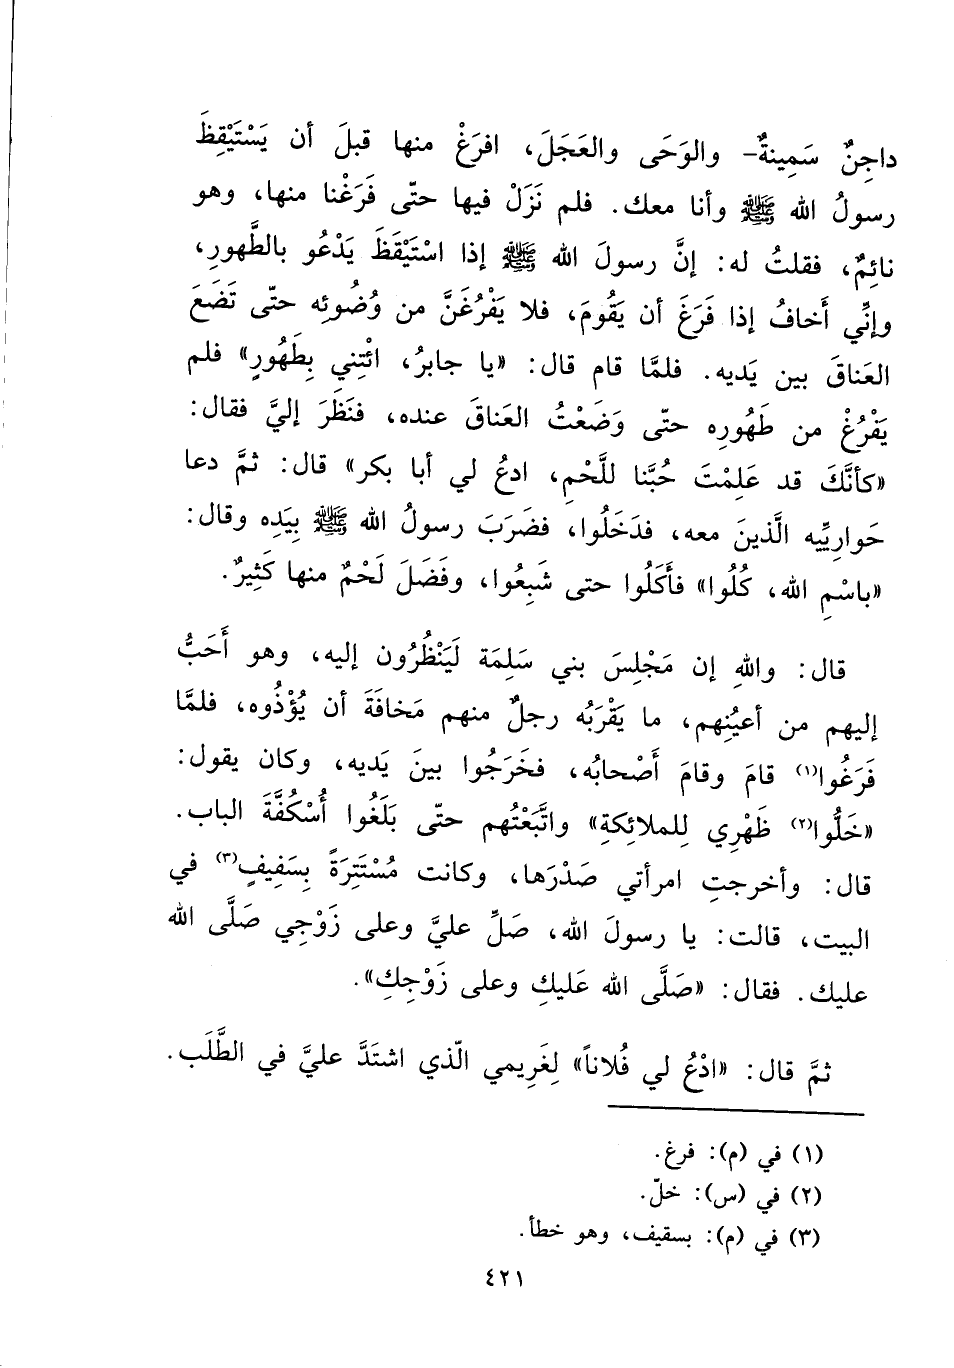 داجِنٌ سَمِينةٌ- والوَحَى والعَجَلَ، افرَغْ منها قبلَ أن يَسْتَيْقِظَ
رسولُ الله ﷺ وأنا معك. فلم نَزَلْ فيها حتّى فَرَغْنا منها، وهو
نائِمٌ، فقلتُ له: إنَّ رسولَ الله ﷺ إذا اسْتَيْقَظَ يَدْعُو بالطَّهورِ،
وإنِّي أَخافُ إذا فَرَغَ أن يَقُومَ، فلا يَفْرُغَنَّ من وُضُوئِه حتّى تَضَعَ
العَناقَ بين يَديه. فلمَّا قام قال: «يا جابرُ، ائْتِني بِطَهُورٍ» فلم
يَفْرُغْ من طَهُورِه حتّى وَضَعْتُ العَناقَ عنده، فنَظَرَ إليَّ فقال:
«كأنَّكَ قد عَلِمْتَ حُبَّنا للَّحْمِ، ادعُ لي أبا بكر» قال: ثمَّ دعا
حَوارِيِّيه الَّذينَ معه، فدَخَلُوا، فضَرَبَ رسولُ الله ﷺ بِيَدِه وقال:
«باسْمِ الله، كُلُوا» فأَكَلُوا حتى شَبِعُوا، وفَضَلَ لَحْمٌ منها كَثِيرٌ.
قال: واللهِ إن مَجْلِسَ بني سَلِمَة لَيَنْظُرُون إليه، وهو أَحَبُّ
إليهم من أعيُنِهم، ما يَقْرَبُه رجلٌ منهم مَخافَةَ أن يُؤْذُوه، فلمَّا
فَرَغُوا(١) قامَ وقامَ أَصْحابُه، فخَرَجُوا بينَ يَديه، وكان يقول:
«خَلُّوا(٢) ظَهْرِي لِلملائِكةِ» واتَّبَعْتُهم حتّى بَلَغُوا أُسْكُفَّةَ الباب.
قال: وأخرجتِ امرأتي صَدْرَها، وكانت مُسْتَتِرَةً بِسَفِيفٍ(٣) في
البيت، قالت: يا رسولَ الله، صَلِّ عليَّ وعلى زَوْجِي صَلَّى الله
عليك. فقال: «صَلَّى الله عَليكِ وعلى زَوْجِكِ».
ثمَّ قال: «ادْعُ لي فُلاناً» لِغَرِيمي الّذي اشتَدَّ عليَّ في الطَّلَب.
(١) في (م): فرغ.
(٢) في (س): خلّ.
(٣) في (م): بسقيف، وهو خطأ.
٤٢١